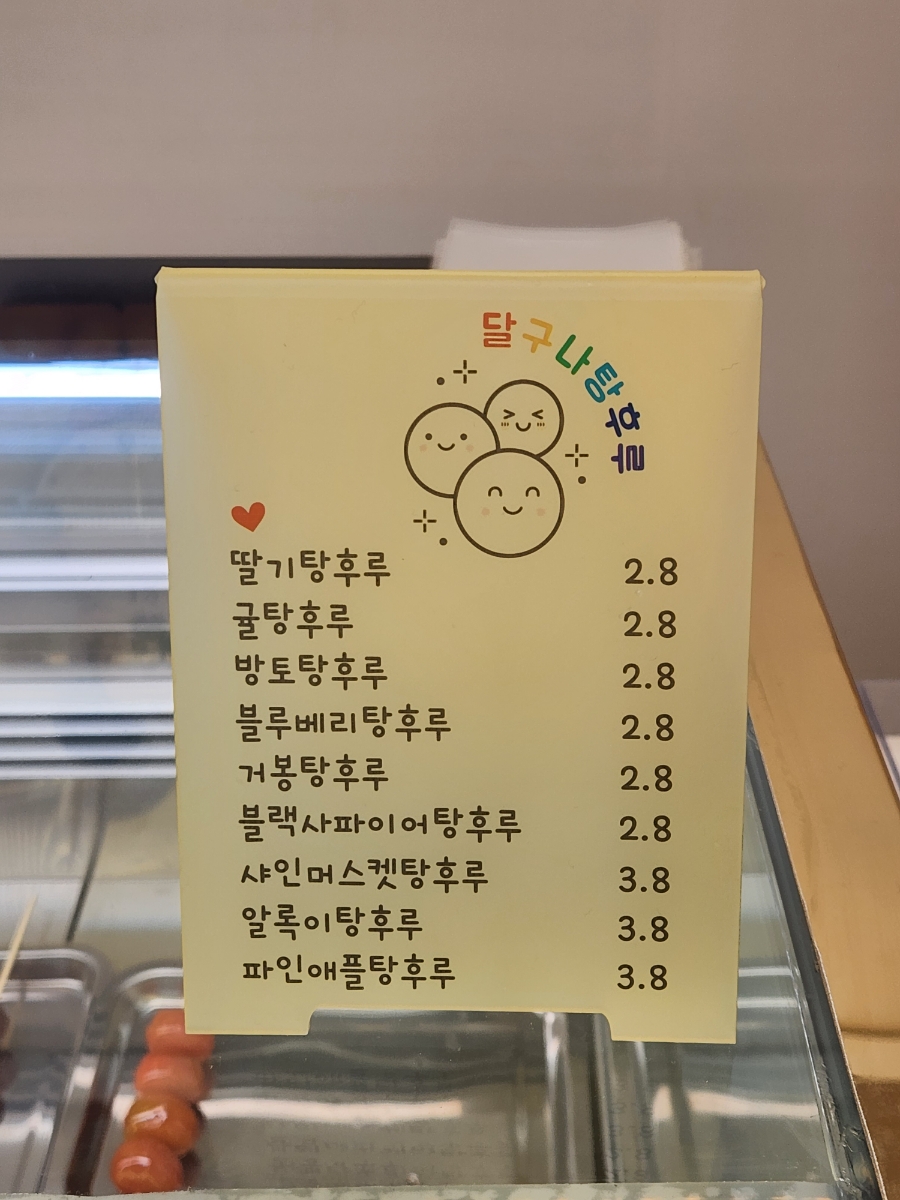 달구나탕후루
딸기탕후루 2.8
귤탕후루 2.8
방토탕후루 2.8
블루베리탕후루 2.8
거봉탕후루 2.8
블랙사파이어탕후루 2.8
샤인머스켓탕후루 3.8
알록이탕후루 3.8
파인애플탕후루 3.8